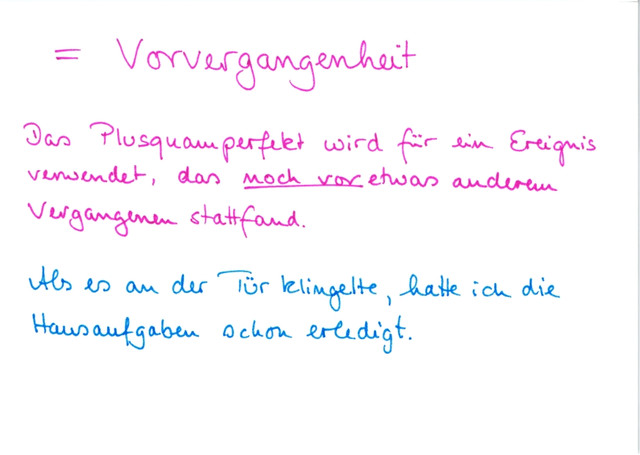 = Vorvergangenheit
Das Plusquamperfekt wird für ein Ereignis
verwendet, das noch vor etwas anderem
Vergangenen stattfand.
Als es an der Tür klingelte, hatte ich die
Hausaufgaben schon erledigt.